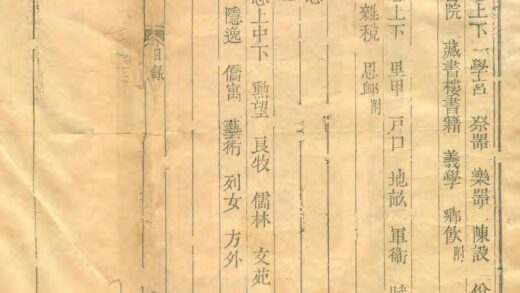 上下 學宮 祭器 樂器 陳設
院 藏書樓書籍 義學 鄉飲附
上下 里甲 戶口 地畝 軍衛 賦
雜稅 恩䘏附
志上中下 勳望 良牧 儒林 文苑
隱逸 僑寓 藝術 列女 方外
目錄